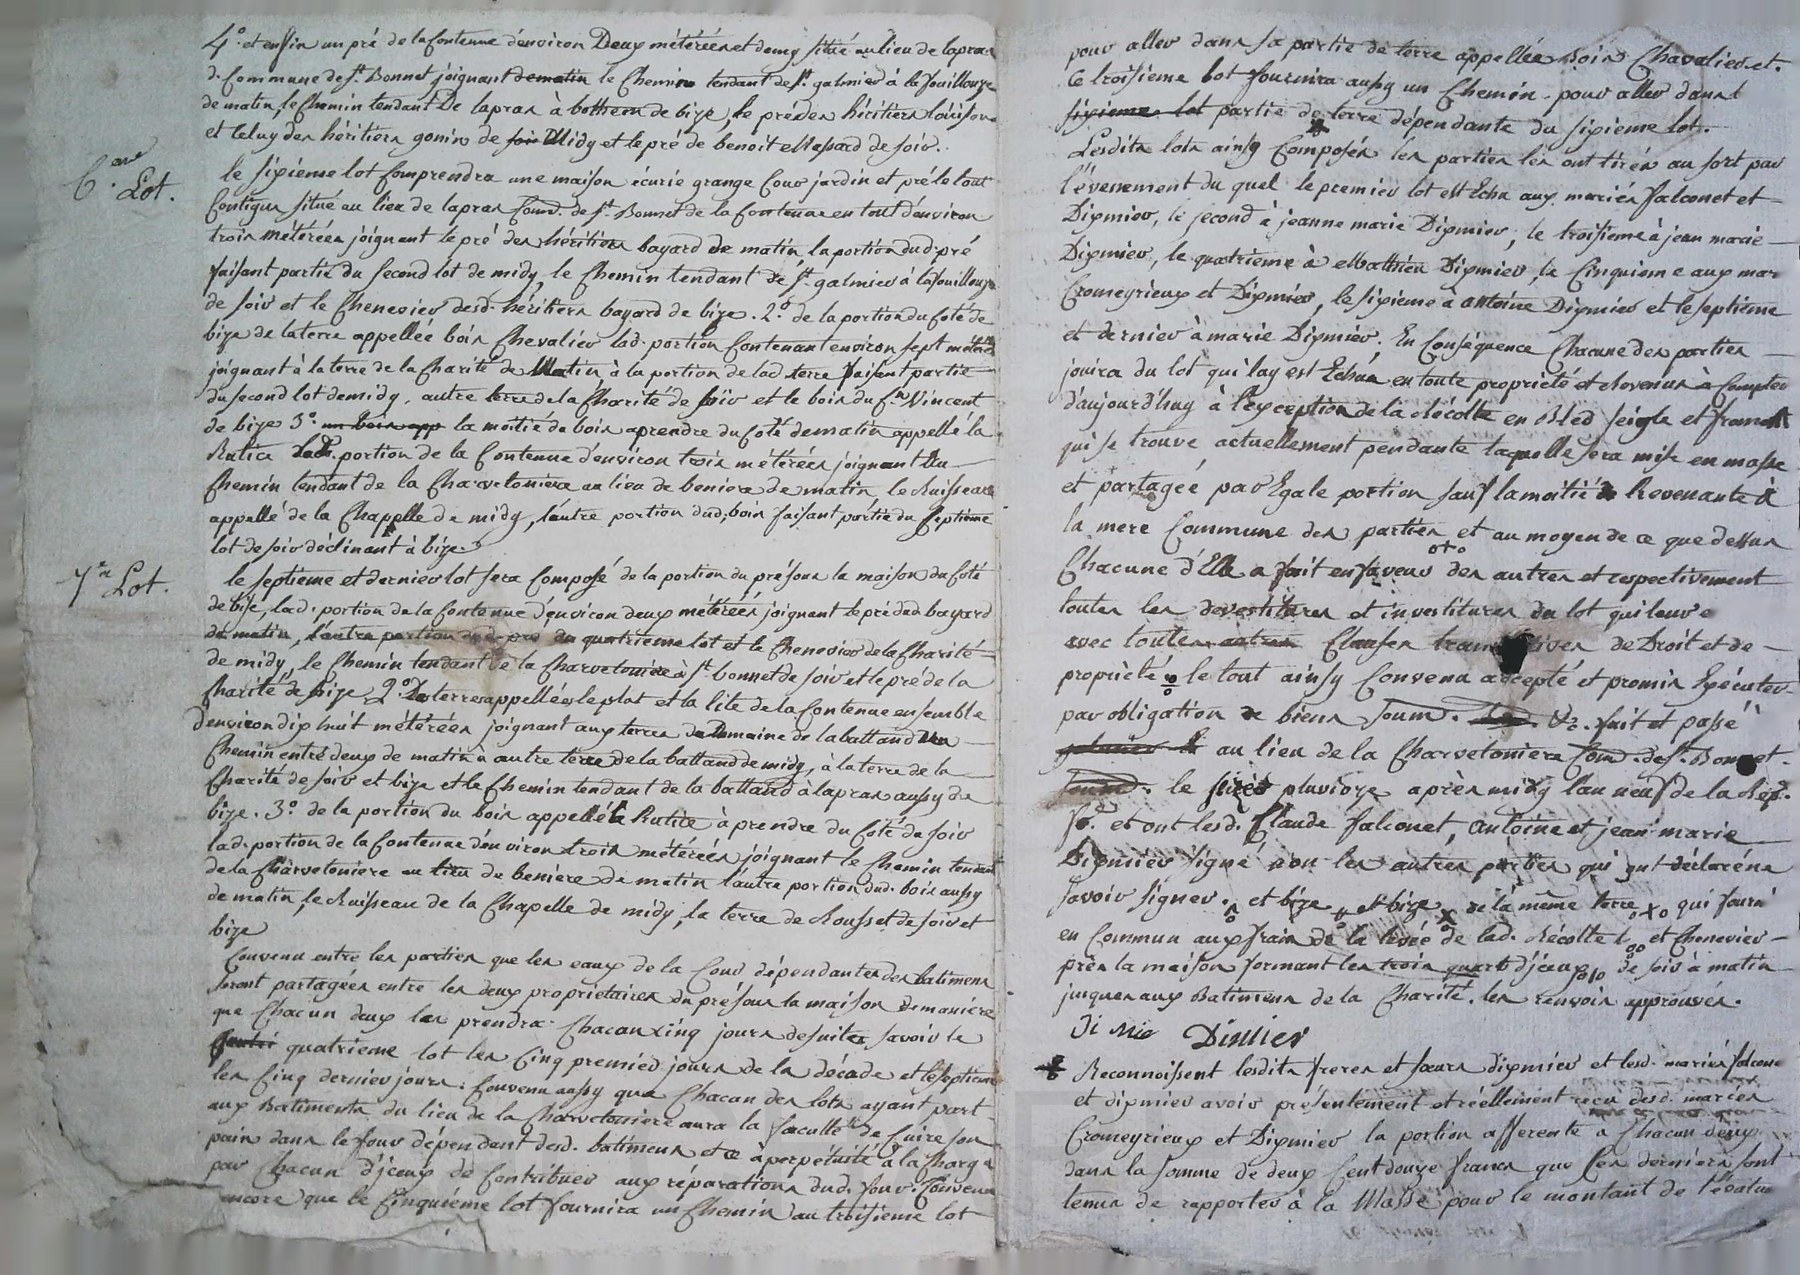 4.° et enfin un pré de la Contenue d'environ Deux métérées et demy situé au lieu de lapras
d. Commune de St. Bonnet joignant de matin le Chemin tendant de St. galmier à la fouillouze
de matin, le Chemin tendant De lapras à bothern de bize, le pré des héritiers loirison
et Celuy des héritiers gonin de soir Midy et le pré de benoit Massard de soir.
6.eme Lot.
le sixieme lot Comprendra une maison écurie grange Cour jardin et pré le tout
Contigus situé au lieu de lapras Comd. de St. Bonnet de la Contenue en tout d'environ
trois métérées joignant le pré des héritiers bayard de matin la portion dud. pré
faisant partie du second lot de midy, le Chemin tendant de St. galmier à lafouillouze
de soir et le Chenevier desd. héritiers bayard de bize. 2.° de la portion du Coté de
bize de la terre appellée bois Chevalier lad. portion Contenant environ sept métérées
joignant à la terre de la Charité de Matin à la portion de lad. terre faisant partie
du second lot de midy, autre terre de la Charité de soir et le bois du Cn. Vincent
de bize 3.° un bois app la moitié de bois aprendre du Coté de matin appellé la
Rutice Lad. portion de la Contenue d'environ trois métérées joignant Au
Chemin tendant de la Charvetoniere au lieu de beniere de matin, le Ruisseau
appellé de la Chappelle de midy, l'autre portion dud. bois faisant partie du septieme
lot de soir déclinant à bize
7.me Lot.
le septieme et dernier lot sera Composé de la portion du pré sous la maison du Coté
de bise, lad. portion de la Contenue d'environ deux métérées joignant le pré dud bayard
de matin, l'autre portion dud. pré du quatrieme lot et le Chenevier de la Charité
de midy, le Chemin tendant de la Charvetoniere à St. bonnet de soir et le pré de la
Charité de bize 2.° De terres appellées le plat et la lite de la Contenue ensemble
d'environ dix huit métérées joignant aux terres de Domaine de la battand un
Chemin entre deux de matin à autre terre de la battand de midy, à la terre de la
Charité de soir et bize et le Chemin tendant de la battand à lapras aussy de
bize. 3.° de la portion du bois appellé la Rutice à prendre du Coté de soir
lad. portion de la Contenue d'environ trois métérées joignant le Chemin tendant
de la Charvetoniere au lieu de beniere de matin l'autre portion dud. bois aussy
de matin, le Ruisseau de la Chapelle de midy, la terre de Rousset de soir et
bize
Convenu entre les parties que les eaux de la Cour dépendantes des batimens
seront partagées entre les deux proprietaires du pré sous la maison de maniere
que Chacun deux les prendra Chacun Cinq jours de suite, savoir le
quatrieme lot les Cinq premied jours de la décade et le septieme
les Cinq dernier jours: Convenu aussy que Chacun des lots ayant part
aux Batiments du lieu de la Charvetoniere aura la faculté de Cuire son
pain dans le four dépendant desd. batimens et ce à perpétuité à la Charge
par Chacun d'jceux de Contribuer aux réparations dud. four. Convenu
encore que le Cinquiéme lot fournira un Chemin au troisieme lot
pour aller dans sa partie de terre appellée Bois Chavalier et.
Ce troisieme lot fournira aussy un Chemin pour aller dans l
sixieme lot partie de terre dépendante du sixieme lot.
Lesdits lots ainsy Composés les parties les ont tirés au sort par
l'évenement du quel le premier lot est Echu aux mariés falconet et
Dixmier, le second à jeanne marie Dixmier, le troisieme à jean marie
Dixmier, le quatrieme à Matthieu Dixmier, le Cinquieme aux mar.
Cromeyrieux et Dixmier, le sixieme à antoine Dixmier et le septieme
et dernier à marie Dixmier. En Conséquence Chacune des parties
jouira du lot qui lay est Echu en toute propriété et Revenus à Compter
d'aujourd'huy à l'exception de la Récolte en Bled seigle et froment
qui se trouve actuellement pendante laquelle sera mise en masse
et partagée par Egale portion sauf la moitié Revenante à
la mere Commune des parties et au moyen de ce que dessus
Chacune d'Elle a fait en faveur des autres et respectivement
toutes les devestitures et investitures du lot qui leur e
avec toutes autres Clauses de Droit et de
propriété le tout ainsy Convenu accepté et promis Exécuter
par obligation de biens soum. &c. fait et passé
au lieu de la Charvetoniere Comd. de St. Bonnet
le pluvioze après midy l'an neuf de la Rép.
fe. et ont lesd. Claude falconet, antoine et jean marie
Dixmier signé non les autres parties qui ont déclaré ne
savoir signer. et bize et bize de la même terre qui fourä
en Commun aux frais de la levée de lad. Récolte et Chenevier
près la maison formant les trois quart d'jceux de soir à matin
jusques aux Batimens de la Charité. les renvois approuvés.
Ji Mie Dimier
Reconnoissent lesdits freres et sœurs dixmier et lesd. mariés falconet
et dixmier avoir présentement et réellement recu desd. mariés
Cromeyrieux et Dixmier la portion afferente a Chacun deux
dans la somme de deux Cent douze francs que Ces derniers sont
tenus de rapporter à la Masse pour le montant de l'évalu